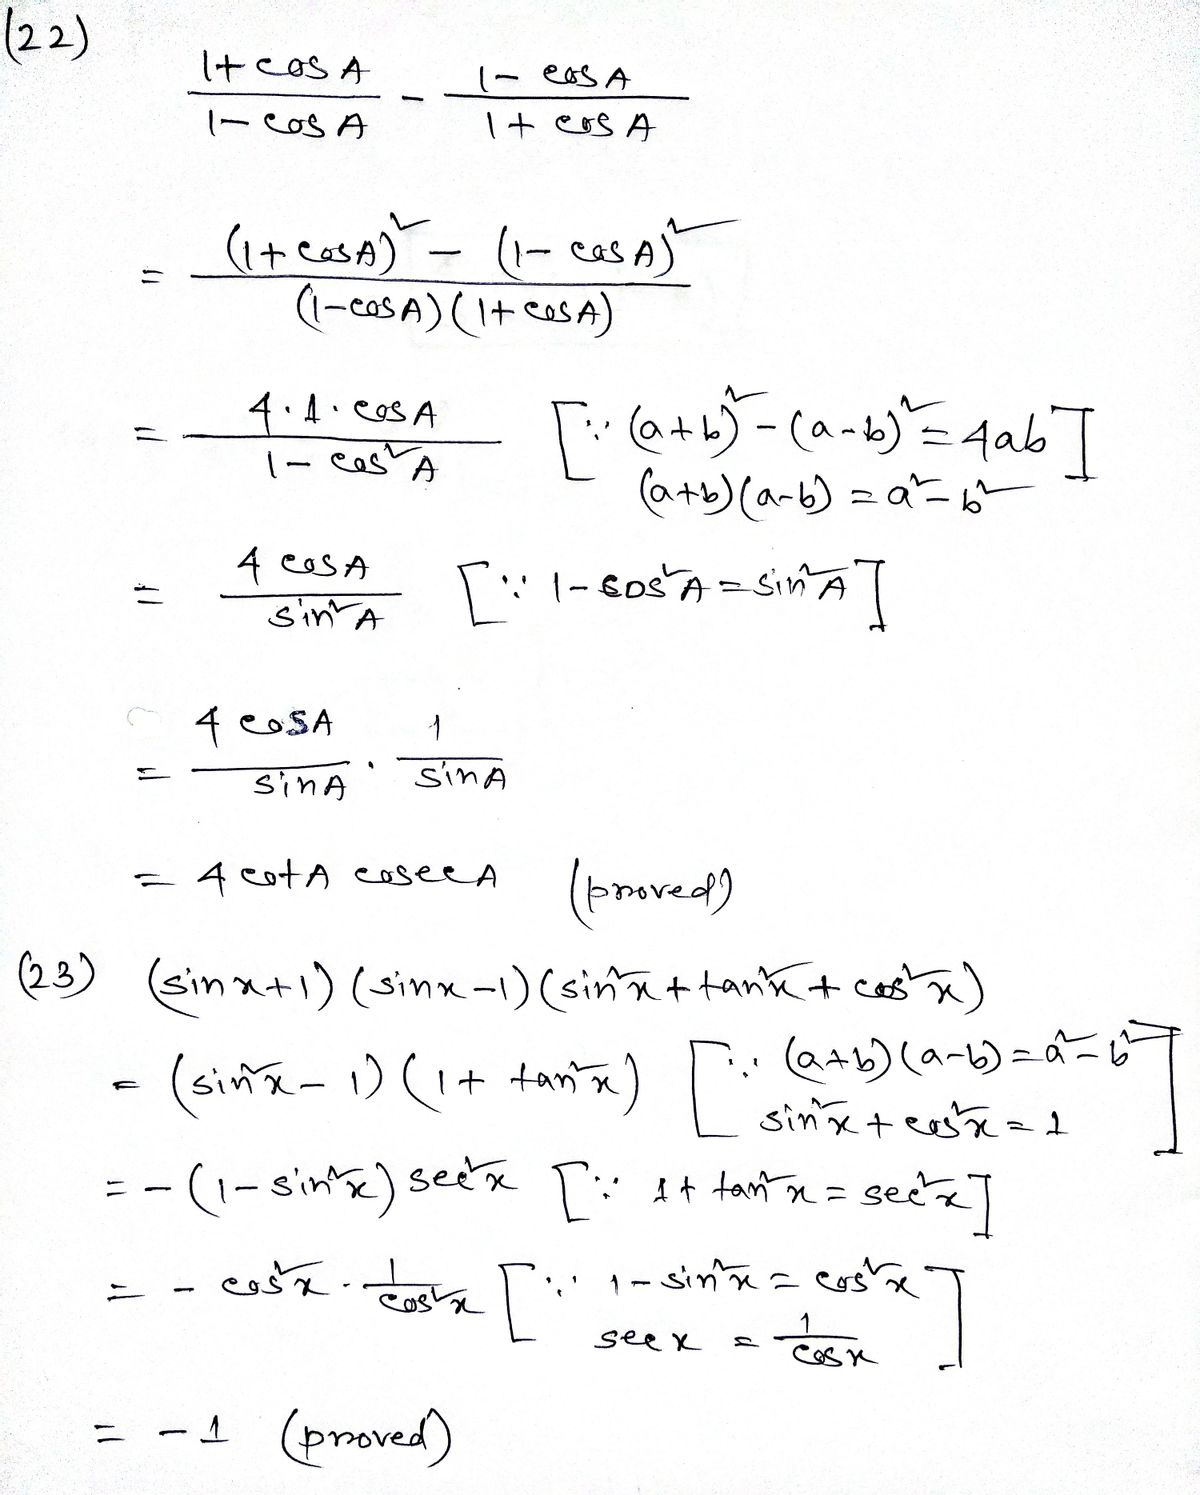 (22)
(1+cosA)/(1-cosA) - (1-cosA)/(1+cosA)
= ((1+cosA)² - (1-cosA)²)/((1-cosA)(1+cosA))
= (4·1·cosA)/(1-cos²A) [∵ (a+b)² - (a-b)² = 4ab]
(a+b)(a-b) = a² - b²
= (4cosA)/(sin²A) [∵ 1-cos²A = sin²A]
= (4cosA)/(sinA) · 1/(sinA)
= 4cotA cosecA (proved)
(23) (sinx+1)(sinx-1)(sin²x+tan²x+cos²x)
= (sin²x-1)(1+tan²x) [∵ (a+b)(a-b) = a²-b²
sin²x+cos²x = 1]
= -(1-sin²x) sec²x [∵ 1+tan²x = sec²x]
= -cos²x · 1/(cos²x) [∵ 1-sin²x = cos²x
secx = 1/(cosx)]
= -1 (proved)